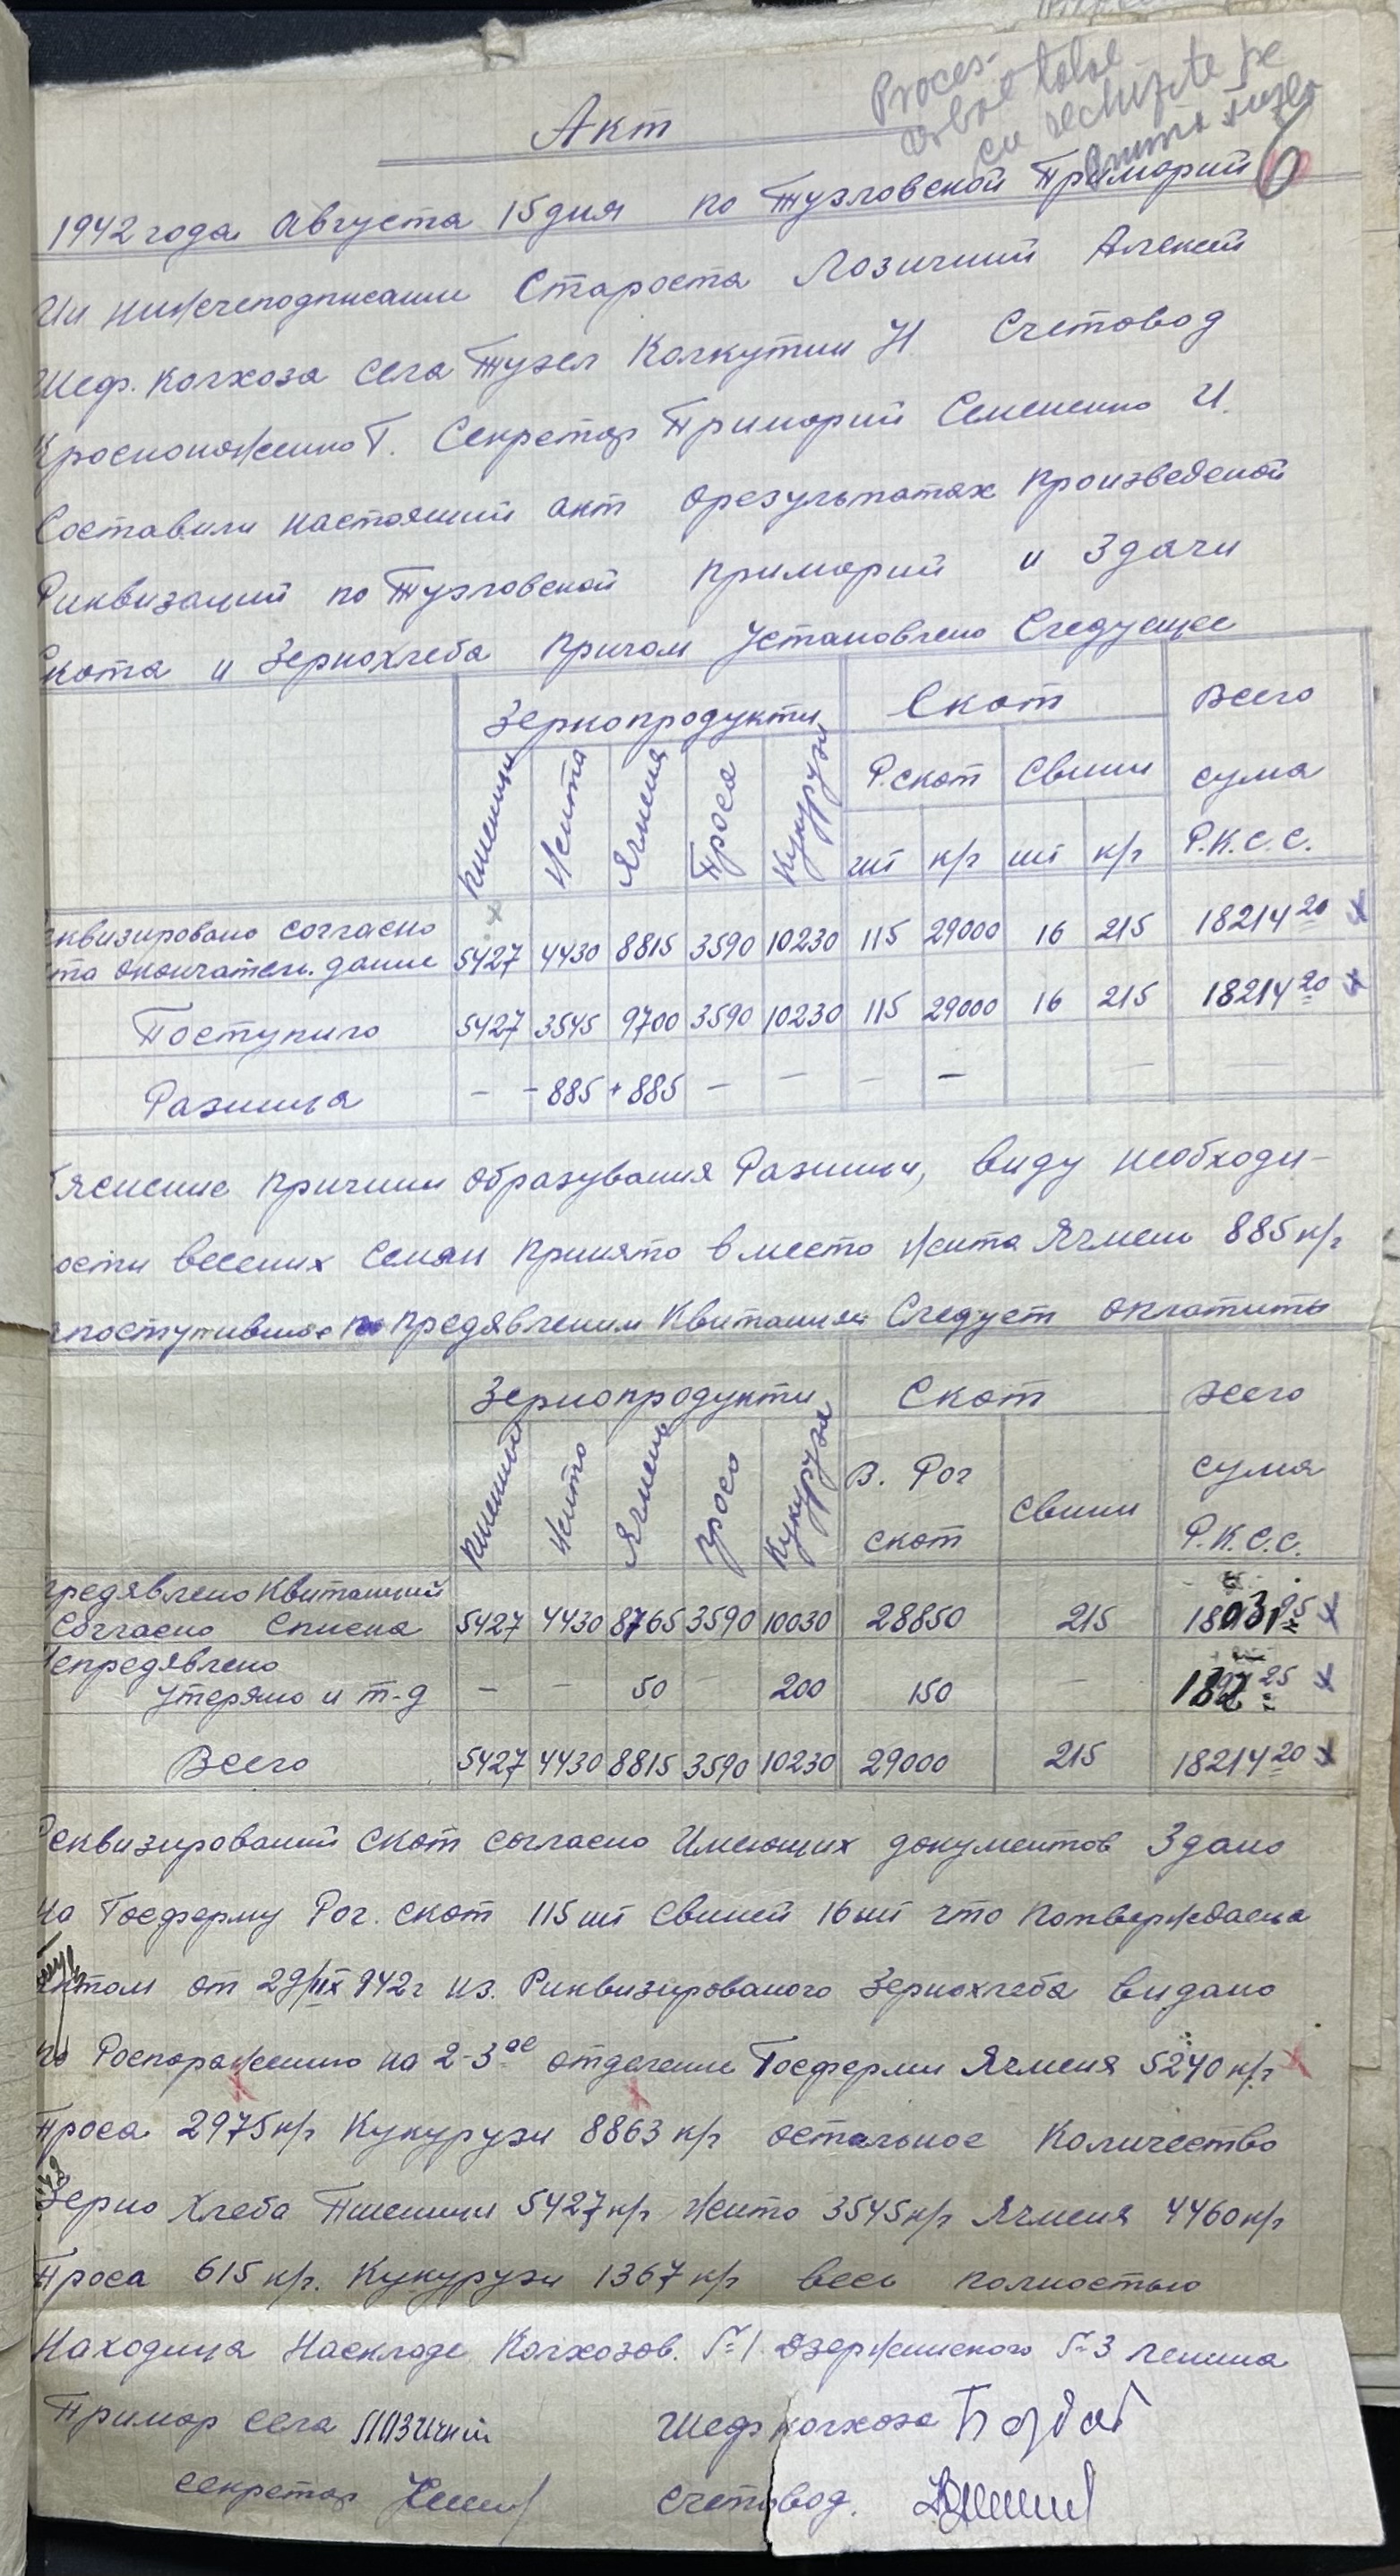 Proces-
verbal total
cu rechizite pe
Акт
6
1942 года Августа 15 дня по Тузловской Примарий
Ми нижчеподписании Староста Лозичний Алексей
Шеф. Колхоза села Тузел Колкутин И Счетовод
Красноножченко Г. Секретар Примарий Семененко И.
Составили настоящий акт орезультатах произведеной
Риквизаций по Тузловской примарий и Здачи
Скота и Зернохлеба Причом Установлено Следующее
Зернопродукти Скот Всего
Пшеници Жита Ячменя Проса Кукурузи Р.скот Свини сума
шт к/г шт к/г Р.К.С.С.
еквизировано согласно
кта окончателн. дание 5427 4430 8815 3590 10230 115 29000 16 215 18214 20 x
Поступило 5427 3545 9700 3590 10230 115 29000 16 215 18214 20 x
Разница – - 885 + 885 – – – –
яснение причини образувания Разници, виду необходи-
ости весених Семян принято вместо жита Ячмено 885 к/г
поступившое по предявлении Квитанций Следует оплатить
Зернопродукти Скот Всего
Пшеници Жито Ячмень Просо Кукуруза В. Рог скот Свини сума
Р.К.С.С.
предявлено Квитанций
Согласно Списка 5427 4430 8765 3590 10030 28850 215 18031 95 x
Непредявлено
утеряно и т-д – – 50 200 150 – 182 25 x
Всего 5427 4430 8815 3590 10230 29000 215 18214 20 x
Реквизирований скот согласно Имеющих документов Здано
на Госферму Рог. скот 115 шт Свиней 16 шт что потверждаеца
актом от 29/IIX 942 г из. Риквизированого Зернохлеба видано
по Роспоражению на 2-3 ое отделение Госферми Ячменя 5240 к/г
Проса 2975 к/г Кукурузи 8863 к/г остальное Количество
Зерно хлеба Пшеници 5427 к/г жито 3545 к/г Ячменя 4460 к/г
Проса 615 к/г. Кукурузи 1367 к/г весь полностью
Находица Наскладе Колхозов. Г=1. Дзержинского Г=3 Ленина
Примар села Лозичний Шеф колхоза
Секретар Счетовод.